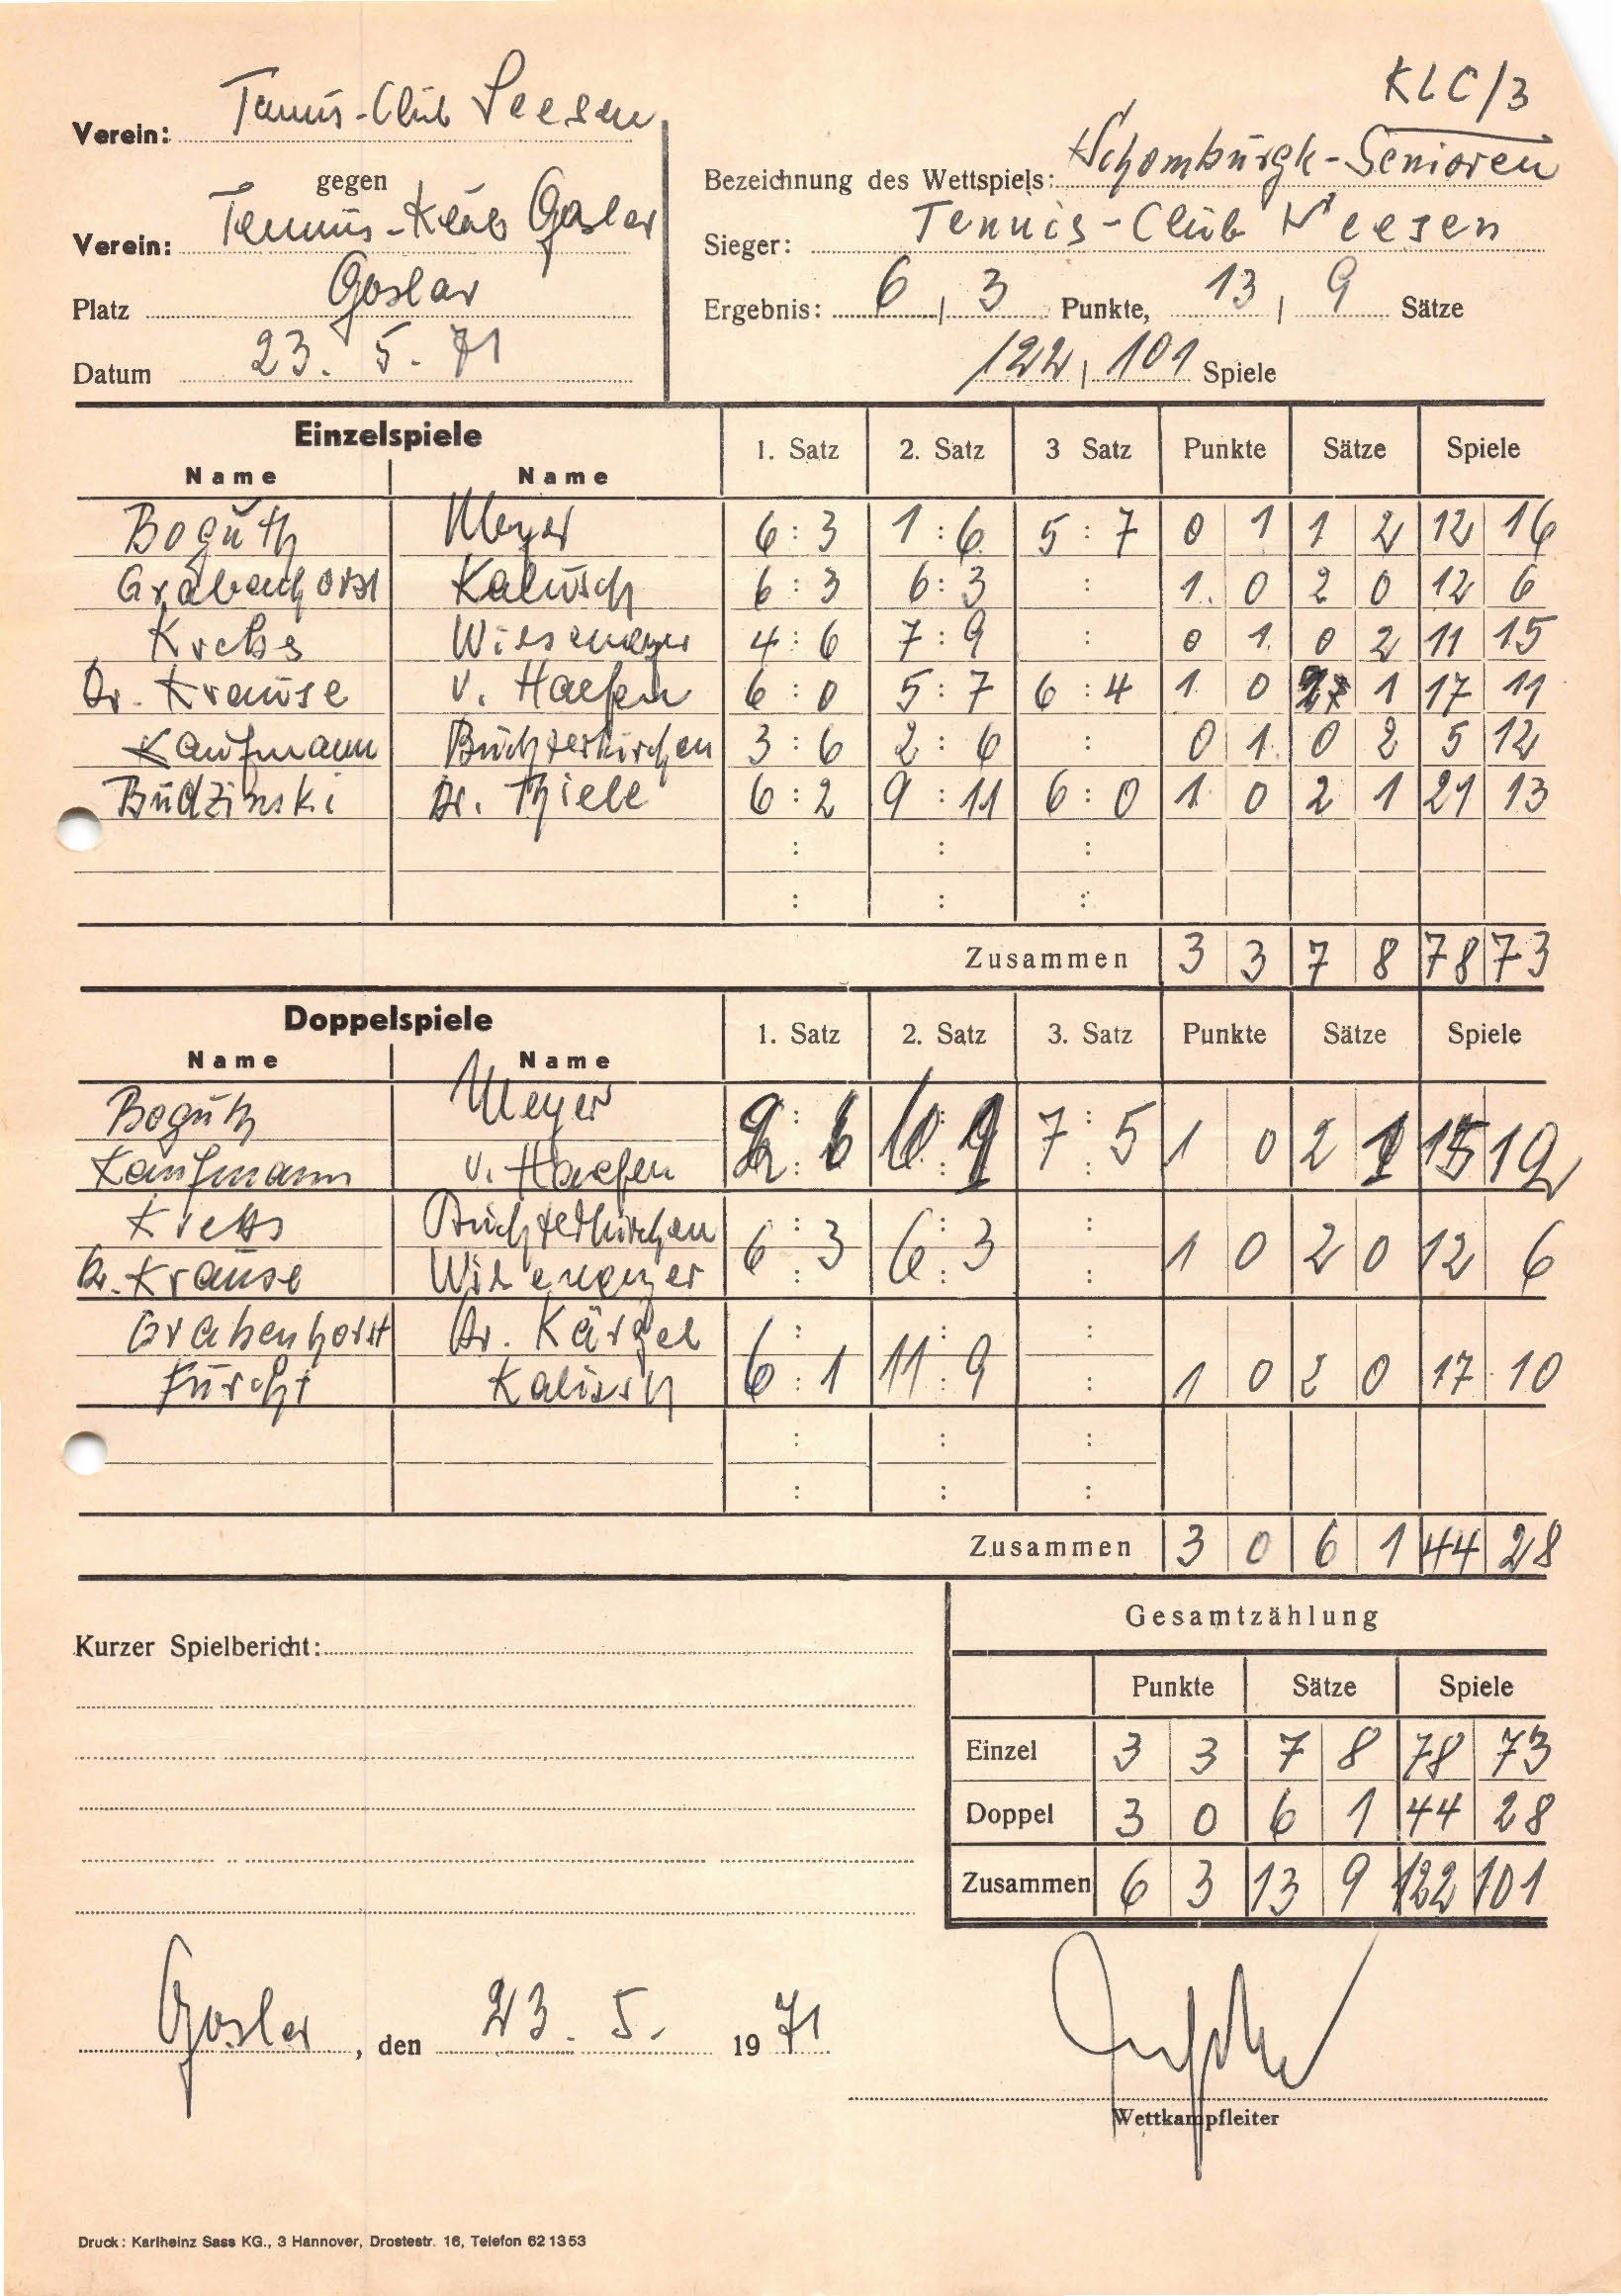 KLC/3
Verein: Tennis-Club Seesen
gegen
Verein: Tennis-Klub Goslar
Platz Goslar
Datum 23. 5. 71
Bezeichnung des Wettspiels: Schomburgk-Senioren
Sieger: Tennis-Club Seesen
Ergebnis: 6 | 3 Punkte, 13 | 9 Sätze
122 | 101 Spiele
Einzelspiele 1. Satz 2. Satz 3 Satz Punkte Sätze Spiele
Name Name
Boguth Meyer 6:3 1:6 5:7 0 1 1 2 12 16
Grabenhorst Kalisch 6:3 6:3 : 1 0 2 0 12 6
Krebs Wiesemeyer 4:6 7:9 : 0 1 0 2 11 15
Dr. Krause v. Haefen 6:0 5:7 6:4 1 0 2 1 17 11
Kaufmann Büchterkirchen 3:6 2:6 : 0 1 0 2 5 12
Budzinski Dr. Thiele 6:2 9:11 6:0 1 0 2 1 21 13
: : :
: : :
Zusammen 3 3 7 8 78 73
Doppelspiele 1. Satz 2. Satz 3. Satz Punkte Sätze Spiele
Name Name
Boguth Meyer 2:6 6:1 7:5 1 0 2 1 15 12
Kaufmann v. Haefen
Krebs Büchterkirchen 6:3 6:3 : 1 0 2 0 12 6
Dr. Krause Wiesemeyer
Grabenhorst Dr. Kärgel
Furcht Kalisch 6:1 11:9 : 1 0 2 0 17 10
: : :
: : :
Zusammen 3 0 6 1 44 28
Kurzer Spielbericht:
Gesamtzählung
Punkte Sätze Spiele
Einzel 3 3 7 8 78 73
Doppel 3 0 6 1 44 28
Zusammen 6 3 13 9 122 101
Goslar, den 23. 5. 1971
Wettkampfleiter
Druck: Karlheinz Sass KG., 3 Hannover, Drostestr. 16, Telefon 62 13 53